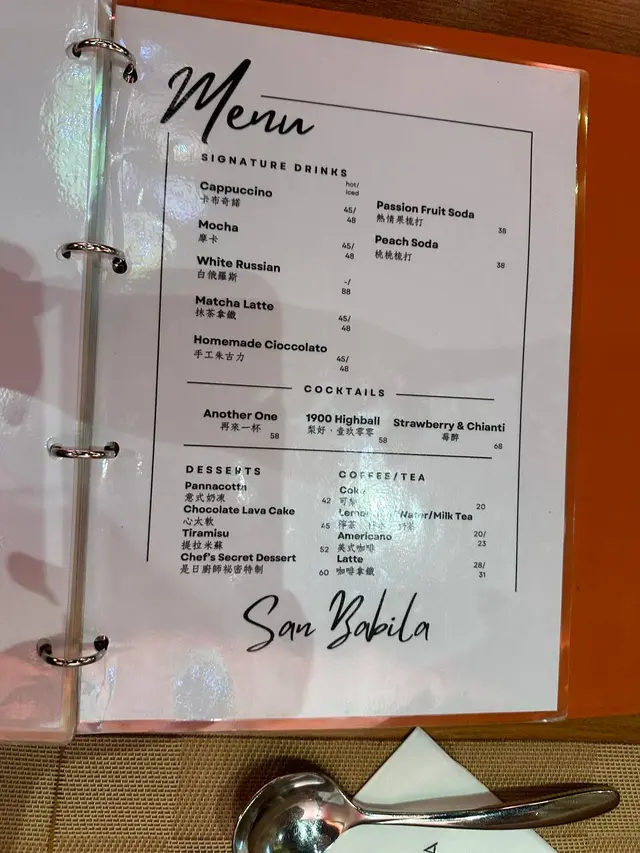 Menu
SIGNATURE DRINKS
hot/
iced
Cappuccino
卡布奇諾
45/
48
Mocha
摩卡
45/
48
White Russian
白俄羅斯
-/
88
Matcha Latte
抹茶拿鐵
45/
48
Homemade Cioccolato
手工朱古力
45/
48
Passion Fruit Soda
熱情果梳打
38
Peach Soda
桃桃梳打
38
COCKTAILS
Another One
再來一杯
58
1900 Highball
梨好，壹玖零零
58
Strawberry & Chianti
莓醉
68
DESSERTS
Pannacotta
意式奶凍
42
Chocolate Lava Cake
心太軟
45
Tiramisu
提拉米蘇
52
Chef's Secret Dessert
是日廚師祕密特制
60
COFFEE/TEA
Coke
可樂
20
Water/Milk Tea
檸茶
20/
23
Americano
美式咖啡
Latte
咖啡拿鐵
28/
31
San Babila